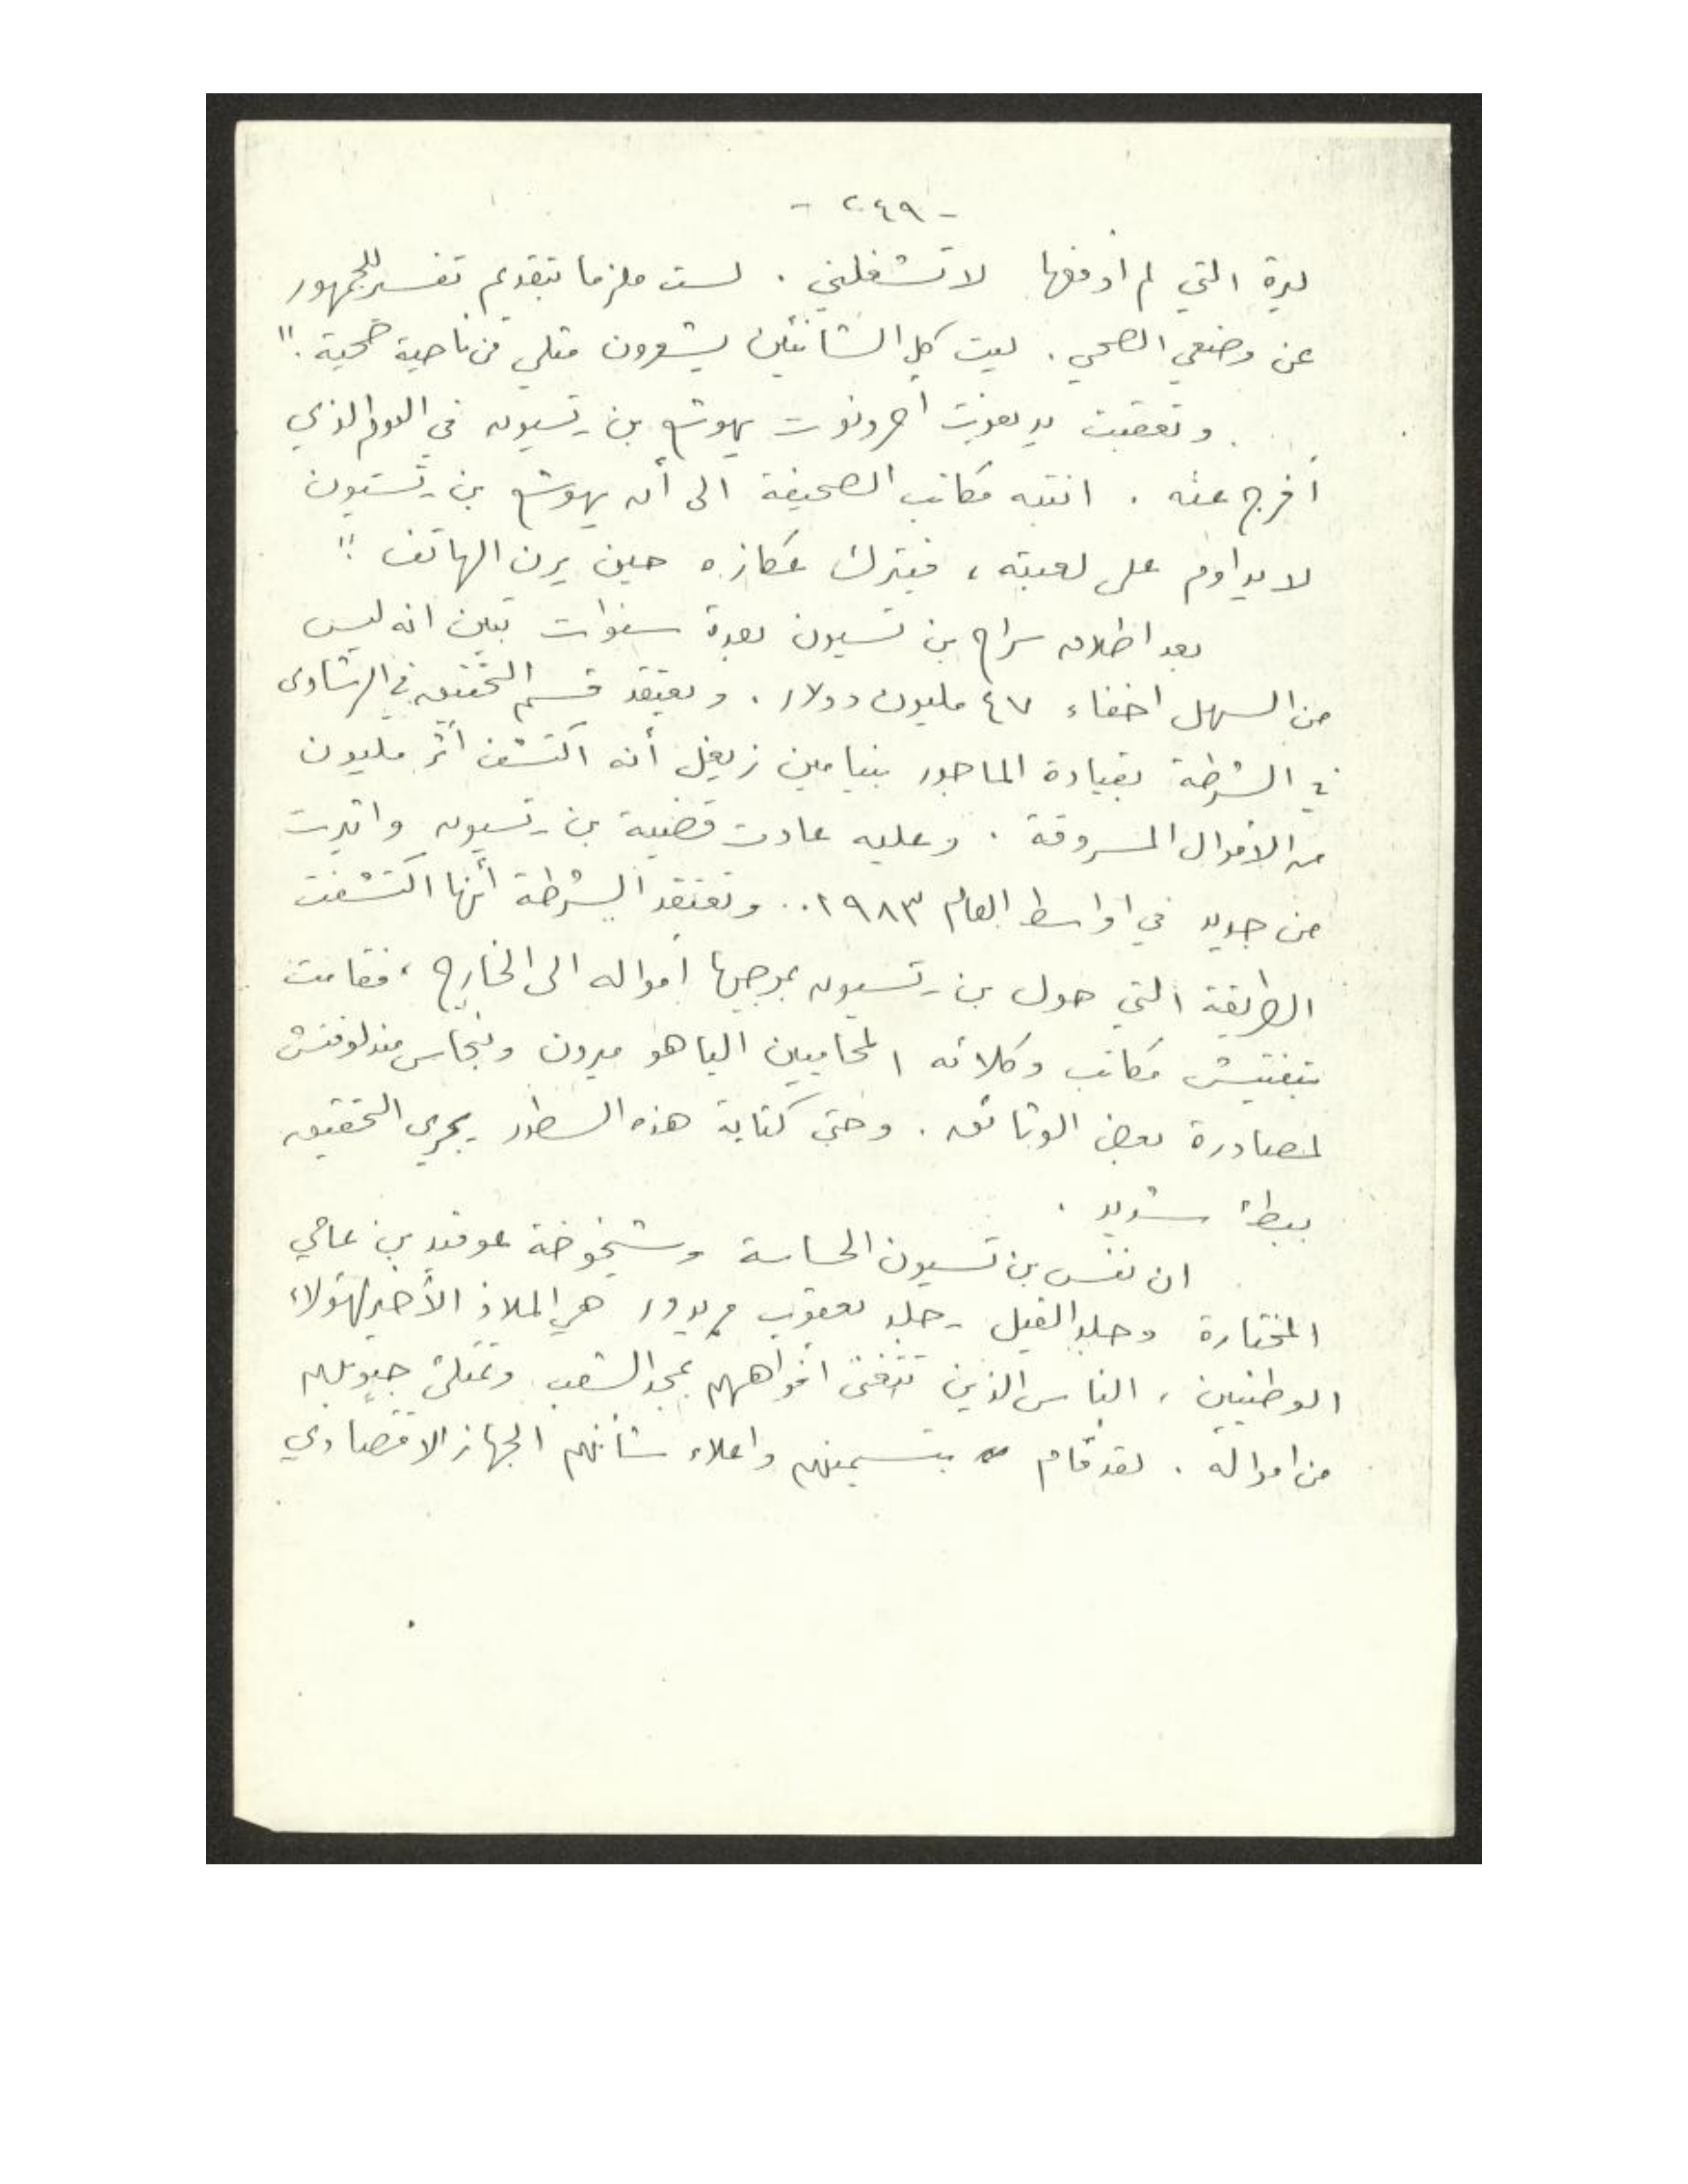 - ٢٤٩ -
ليرة التي لم أدفعها لا تشغلني . لست ملزما بتقديم تفسير للجمهور
عن وضعي الصحي . ليت كل الشانئين يشعرون مثلي من ناحية صحية . "
وتعقبت يديعوت أحرونوت يهوشع بن - تسيون في اليوم الذي
أفرج عنه . انتبه مكاتب الصحيفة الى أن يهوشع بن - تسيون
لا يداوم على لعبته ، فيترك عكازه حين يرن الهاتف "
بعد اطلاق سراح بن تسيون بعدة سنوات تبين انه ليس
من السهل اخفاء ٤٧ مليون دولار . ويعتقد قسم التحقيق في الرشاوى
في الشرطة بقيادة الماجور بنيامين زيغل أنه اكتشف أثر مليون
من الأموال المسروقة . وعليه عادت قضية بن - تسيون واثيرت
من جديد في اواسط العام ١٩٨٣ .. وتعتقد الشرطة أنها اكتشفت
الطريقة التي حول بن - تسيون بموجبها أمواله الى الخارج ، فقامت
بتفتيش مكاتب وكلائه المحاميين الياهو ميرون وبنحاس مندلوفتش
لمصادرة بعض الوثائق . وحتى كتابة هذه السطور يجري التحقيق
ببطئ شديد .
ان نفس بن تسيون الحساسة وشيخوخة عوفيد بن عامي
المختارة وجلد الفيل - جلد يعقوب مريدور هي الملاذ الأخير لهؤلاء
الوطنيين ، الناس الذين تتغنى افواههم بمجد الشعب وتمتلئ جيوبهم
من امواله . لقد قام بتسمينهم واعلاء شأنهم الجهاز الاقتصادي